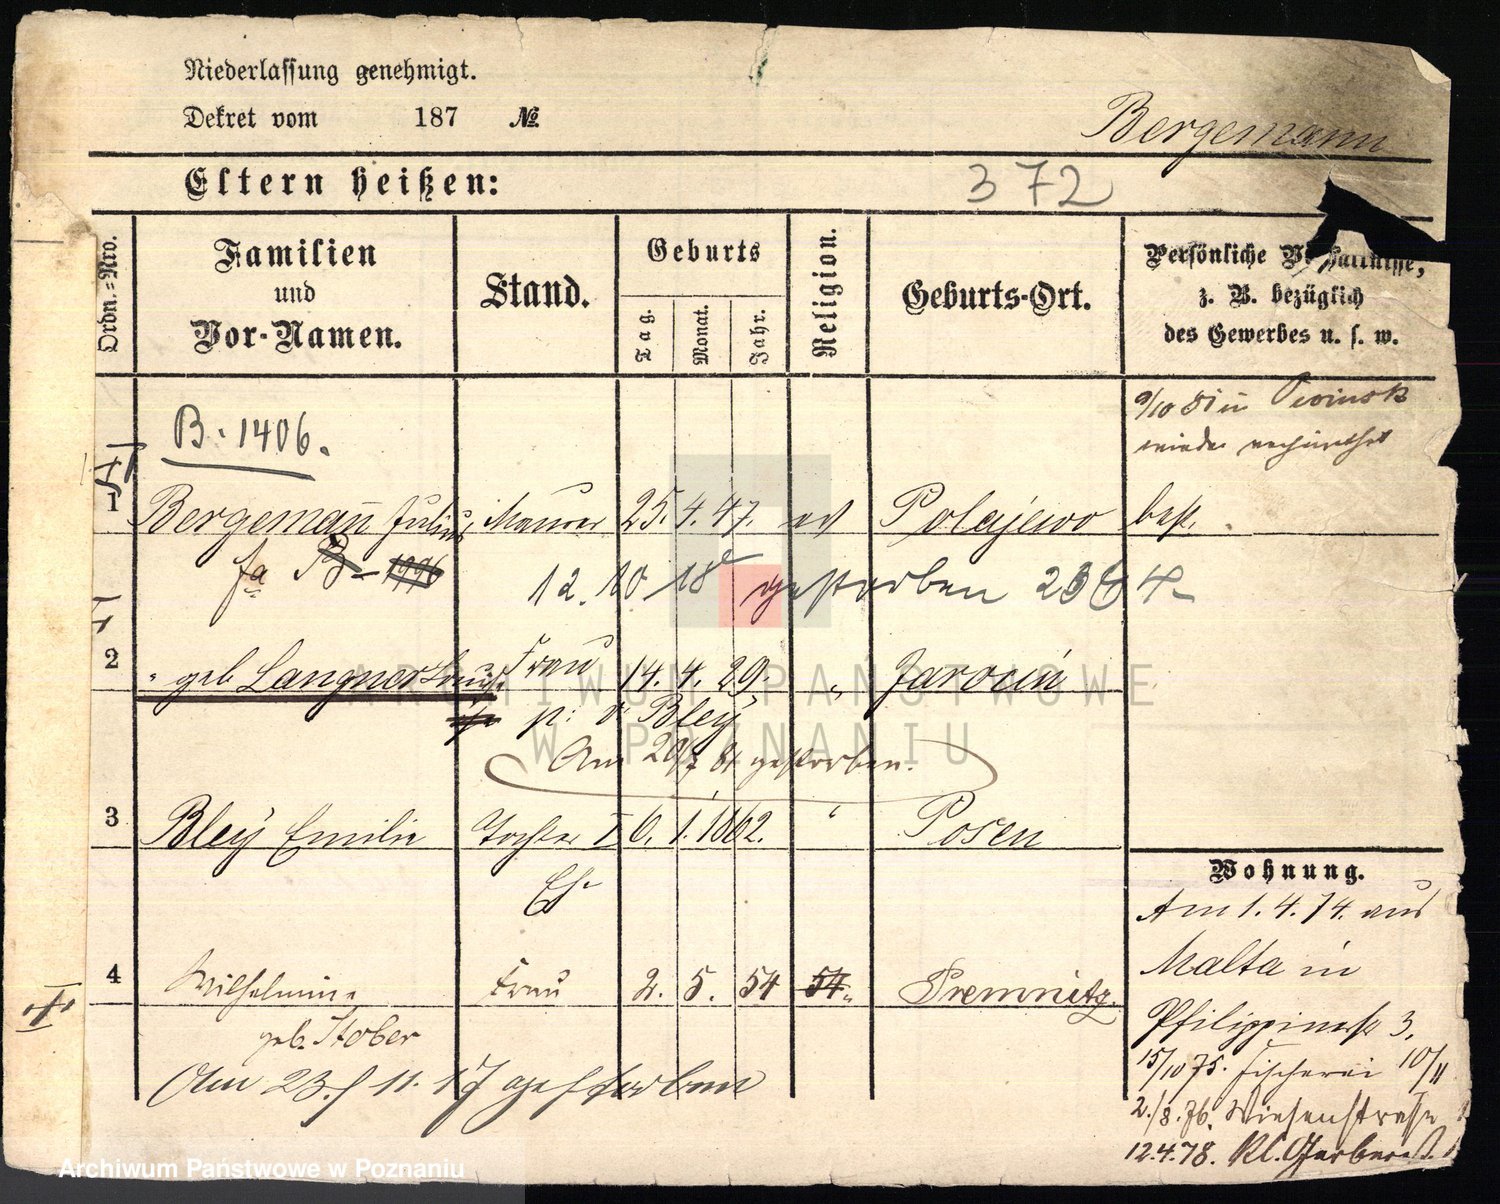 Niederlassung genehmigt.
Dekret vom 187 №
Bergemann
Eltern heißen:
372
Ordn.=Nro.
Familien und Vor-Namen.
Stand.
Geburts
Tag.
Monat.
Jahr.
Religion.
Geburts-Ort.
Persönliche
z. B. bezüglich
des Gewerbes u. s. w.
B. 1406.
9/10 81 in
wieder verheirathet
1 Bergeman̄ Julius Maurer 25. 4. 47. ev Polajewo
B - 1996
12. 10 18 gestorben 2364
2 " geb Langner Frau 14. 4. 29. " Jarocin
p: v Bley
Am 29/7 81 gestorben.
3 Bley Emilie Tochter I 6. 1. 1862. " Posen
Eh-
4 Wilhelmine Frau 2. 5. 54 54 " Premnitz.
geb. Stober
Am 23./11. 17 gestorben
Wohnung.
Am 1. 4. 74. aus
Malta in
Philippinerstr 3.
15/10 75. Fischerei 10/11
2./8. 76. Wiesenstrasse
12.4.78. Kl. Gerberstr.
ARCHIWUM PAŃSTWOWE
W POZNANIU
Archiwum Państwowe w Poznaniu